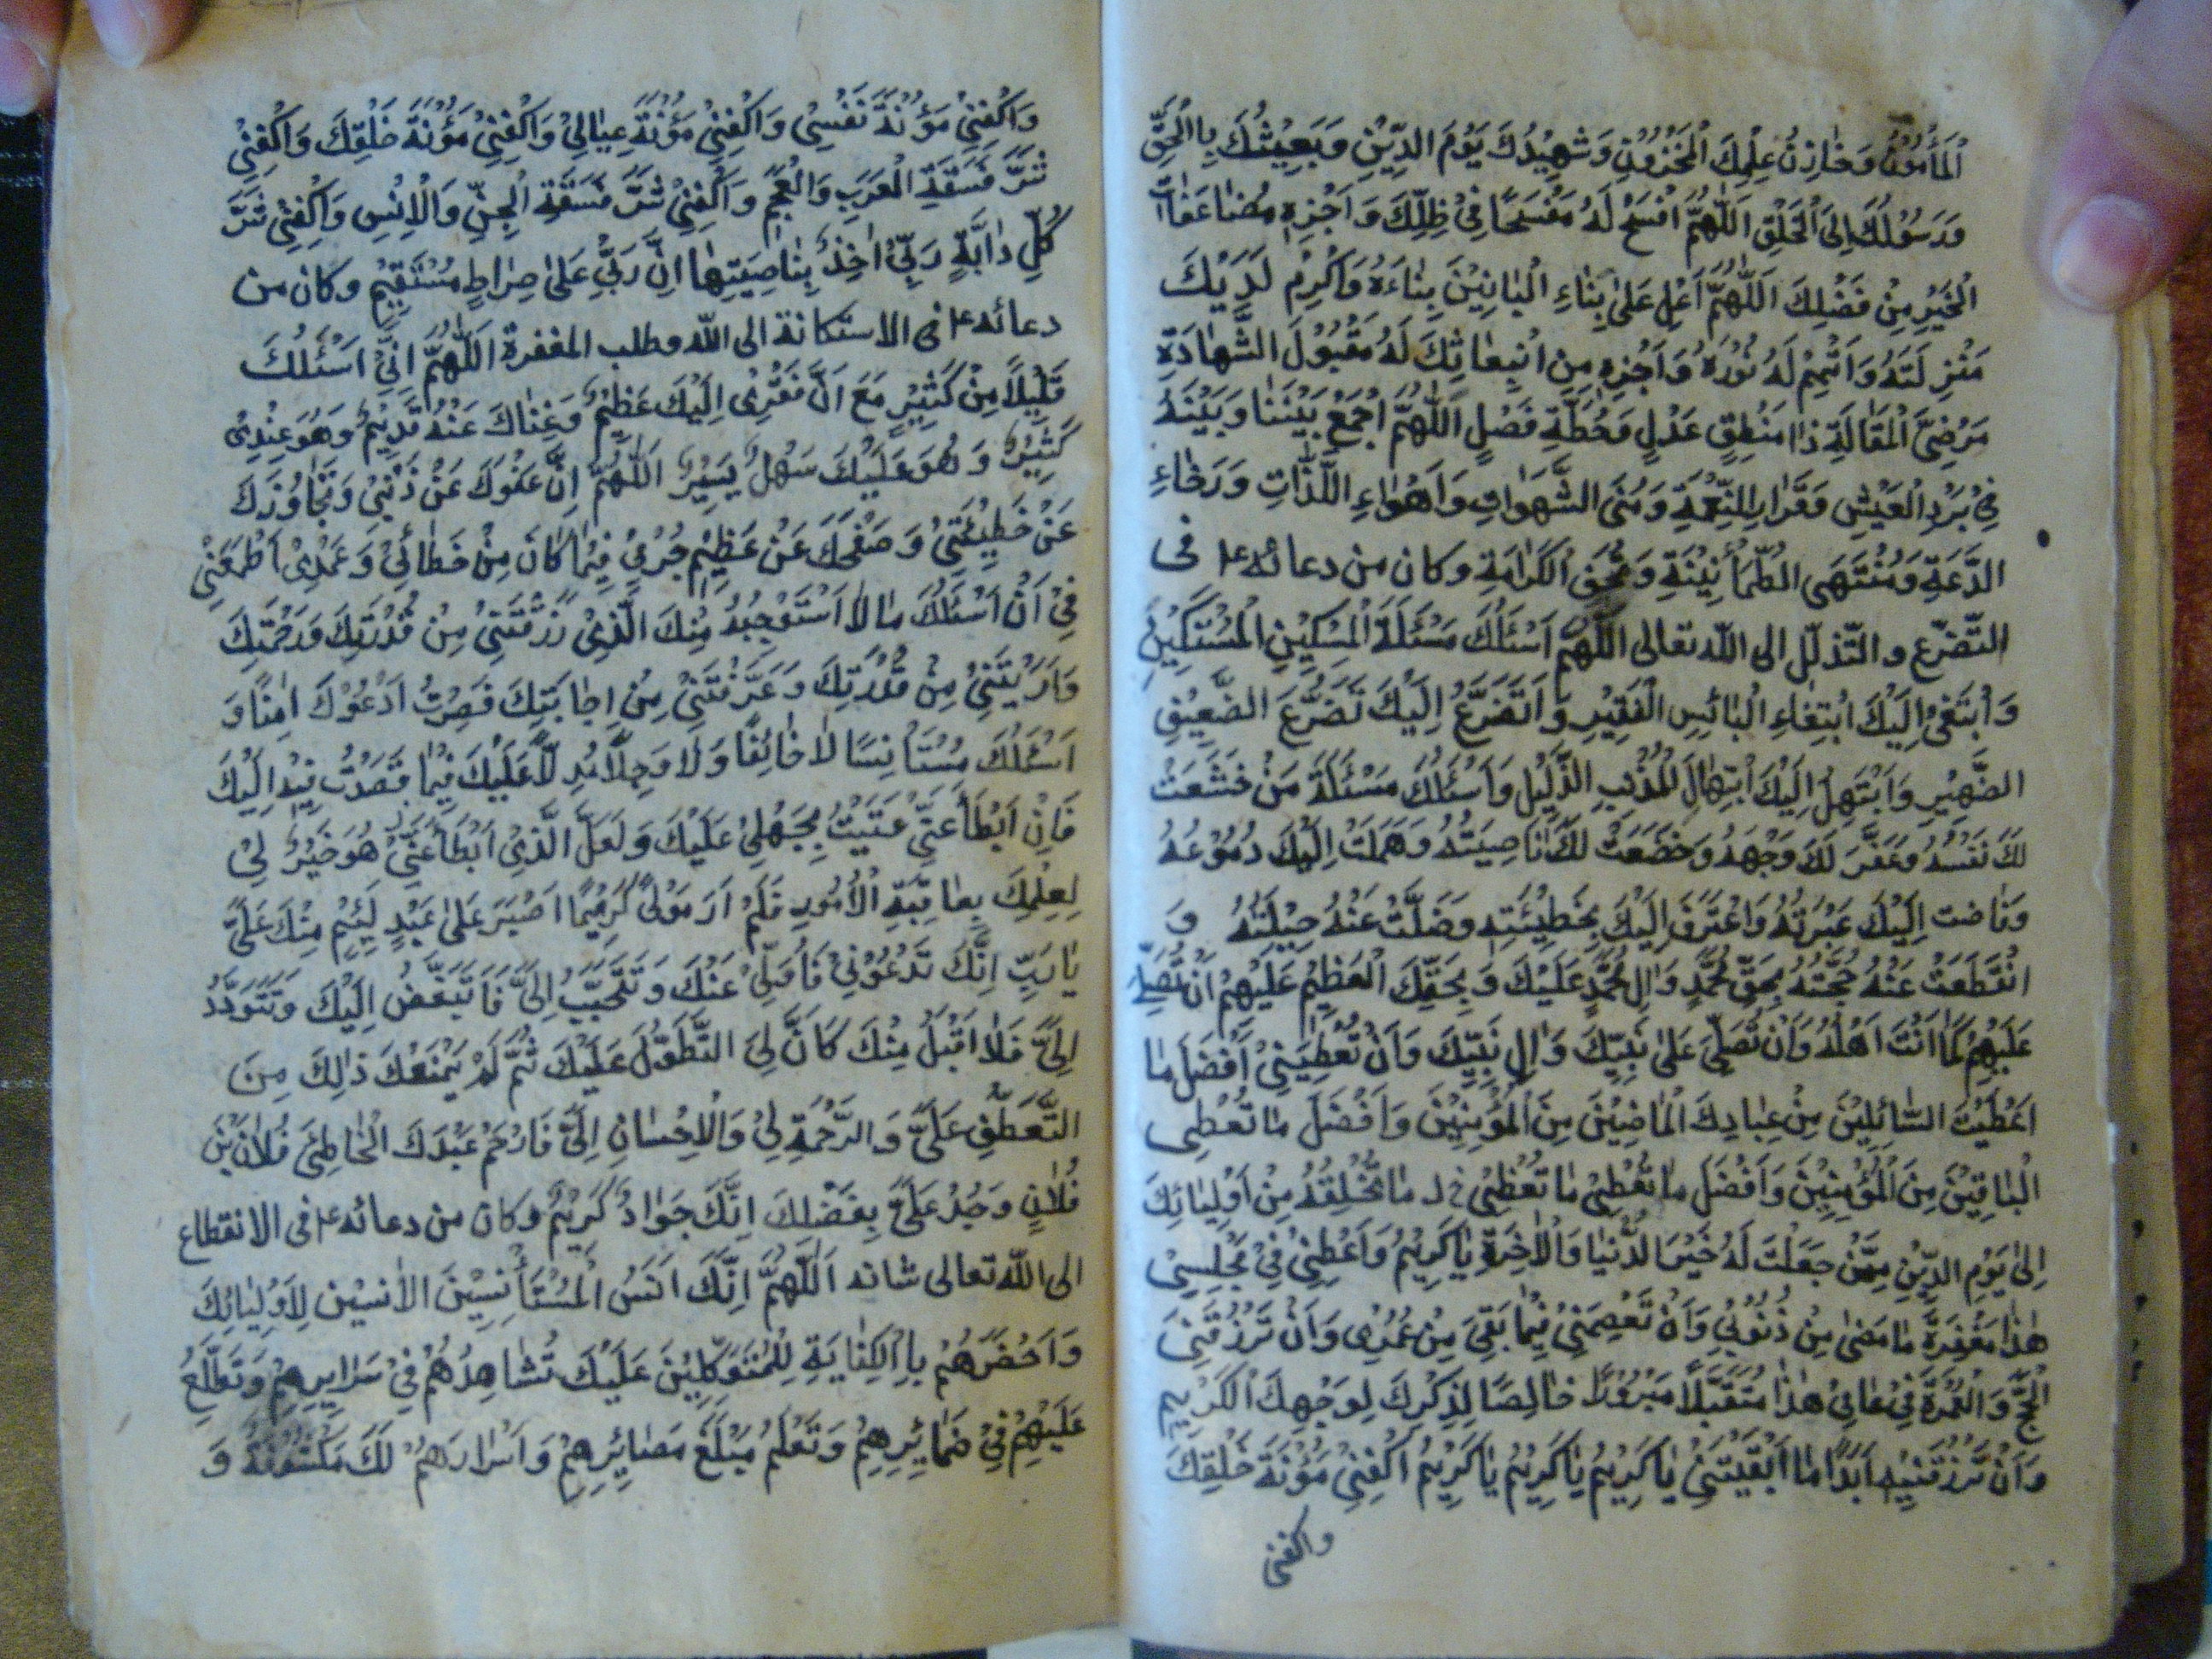 الْمَأْمُونُ وَخَازِنُ عِلْمِكَ الْمَخْزُونِ وَشَهِيدُكَ يَوْمَ الدِّينِ وَبَعِيثُكَ بِالْحَقِّ
وَرَسُولُكَ إِلَى الْخَلْقِ اَللّٰهُمَّ افْسَحْ لَهُ مَفْسَحًا فِي ظِلِّكَ وَاجْزِهِ مُضَاعَفَاتِ
الْخَيْرِ مِنْ فَضْلِكَ اَللّٰهُمَّ أَعْلِ عَلَى بِنَاءِ الْبَانِينَ بِنَاءَهُ وَأَكْرِمْ لَدَيْكَ
مَنْزِلَتَهُ وَأَتْمِمْ لَهُ نُورَهُ وَاجْزِهِ مِنِ انْبِعَاثِكَ لَهُ مَقْبُولَ الشَّهَادَةِ
مَرْضِيَّ الْمَقَالَةِ ذَا مَنْطِقٍ عَدْلٍ وَخُطَّةٍ فَصْلٍ اَللّٰهُمَّ اجْمَعْ بَيْنَنَا وَبَيْنَهُ
فِي بَرْدِ الْعَيْشِ وَقَرَارِ النِّعْمَةِ وَمُنَى الشَّهَوَاتِ وَأَهْوَاءِ اللَّذَّاتِ وَرَخَاءِ
الدَّعَةِ وَمُنْتَهَى الطُّمَأْنِينَةِ وَتُحَفِ الْكَرَامَةِ وكان من دعائه ع فى
التّضرّع والتّذلّل الى الله تعالى اَللّٰهُمَّ أَسْئَلُكَ مَسْئَلَةَ الْمِسْكِينِ الْمُسْتَكِينِ
وَأَبْتَغِي إِلَيْكَ ابْتِغَاءَ الْبَائِسِ الْفَقِيرِ وَأَتَضَرَّعُ إِلَيْكَ تَضَرُّعَ الضَّعِيفِ
الضَّهِيرِ وَأَبْتَهِلُ إِلَيْكَ ابْتِهَالَ الْمُذْنِبِ الذَّلِيلِ وَأَسْئَلُكَ مَسْئَلَةَ مَنْ خَشَعَتْ
لَكَ نَفْسُهُ وَعَفَّرَ لَكَ وَجْهَهُ وَخَضَعَتْ لَكَ نَاصِيَتُهُ وَهَمَلَتْ إِلَيْكَ دُمُوعُهُ
وَفَاضت إِلَيْكَ عَبْرَتُهُ وَاعْتَرَفَ إِلَيْكَ بِخَطِيئَتِهِ وَضَلَّتْ عَنْهُ حِيلَتُهُ وَ
انْقَطَعَتْ عَنْهُ حُجَّتُهُ بِحَقِّ مُحَمَّدٍ وَآلِ مُحَمَّدٍ عَلَيْكَ وَبِحَقِّكَ الْعَظِيمِ عَلَيْهِمْ أَنْ تُصَلِّيَ
عَلَيْهِمْ كَمَا أَنْتَ أَهْلُهُ وَأَنْ تُصَلِّيَ عَلَى نَبِيِّكَ وَآلِ نَبِيِّكَ وَأَنْ تُعْطِيَنِي أَفْضَلَ مَا
أَعْطَيْتَ السَّائِلِينَ مِنْ عِبَادِكَ الْمَاضِينَ مِنَ الْمُؤْمِنِينَ وَأَفْضَلَ مَا تُعْطِي
الْبَاقِينَ مِنَ الْمُؤْمِنِينَ وَأَفْضَلَ مَا تُعْطِي مَا تُعْطِي خ ل مَا تَخْلُقُهُ مِنْ أَوْلِيَائِكَ
إِلَى يَوْمِ الدِّينِ مِمَّنْ جَعَلْتَ لَهُ خَيْرَ الدُّنْيَا وَالْآخِرَةِ يَا كَرِيمُ وَأَعْطِنِي فِي مَجْلِسِي
هَذَا مَغْفِرَةَ مَا مَضَى مِنْ ذُنُوبِي وَأَنْ تَعْصِمَنِي فِيمَا بَقِيَ مِنْ عُمُرِي وَأَنْ تَرْزُقَنِيَ
الْحَجَّ وَالْعُمْرَةَ فِي عَامِي هَذَا مُتَقَبَّلًا مَبْرُورًا خَالِصًا لِذِكْرِكَ لِوَجْهِكَ الْكَرِيمِ
وَأَنْ تَرْزُقَنِيهِ أَبَدًا مَا أَبْقَيْتَنِي يَا كَرِيمُ يَا كَرِيمُ يَا كَرِيمُ اكْفِنِي مَؤُنَةَ خَلْقِكَ
واكفنى
وَاكْفِنِي مَؤُنَةَ نَفْسِي وَاكْفِنِي مَؤُنَةَ عِيَالِي وَاكْفِنِي مَؤُنَةَ خَلْقِكَ وَاكْفِنِي
شَرَّ فَسَقَةِ الْعَرَبِ وَالْعَجَمِ وَاكْفِنِي شَرَّ فَسَقَةِ الْجِنِّ وَالْإِنْسِ وَاكْفِنِي شَرَّ
كُلِّ دَابَّةٍ رَبِّي آخِذٌ بِنَاصِيَتِهَا إِنَّ رَبِّي عَلَى صِرَاطٍ مُسْتَقِيمٍ وكان من
دعائه ع فى الاستكانة الى الله وطلب المغفرة اَللّٰهُمَّ إِنِّي أَسْئَلُكَ
قَلِيلًا مِنْ كَثِيرٍ مَعَ أَنَّ فَقْرِي إِلَيْكَ عَظِيمٌ وَغِنَاكَ عَنْهُ قَدِيمٌ وَهُوَ عِنْدِي
كَثِيرٌ وَهُوَ عَلَيْكَ سَهْلٌ يَسِيرٌ اَللّٰهُمَّ إِنَّ عَفْوَكَ عَنْ ذَنْبِي وَتَجَاوُزَكَ
عَنْ خَطِيئَتِي وَصَفْحَكَ عَنْ عَظِيمِ جُرْمِي فِيمَا كَانَ مِنْ خَطَائِي وَعَمْدِي أَطْمَعَنِي
فِي أَنْ أَسْئَلَكَ مَا لَا أَسْتَوْجِبُهُ مِنْكَ الَّذِي رَزَقْتَنِي مِنْ قُدْرَتِكَ وَرَحْمَتِكَ
وَأَرَيْتَنِي مِنْ قُدْرَتِكَ وَعَرَّفْتَنِي مِنْ إِجَابَتِكَ فَصِرْتُ أَدْعُوكَ آمِنًا وَ
أَسْئَلُكَ مُسْتَأْنِسًا لَا خَائِفًا وَلَا وَجِلًا مُدِلًّا عَلَيْكَ فِيمَا قَصَدْتُ فِيهِ إِلَيْكَ
فَإِنْ أَبْطَأَ عَنِّي عَتَبْتُ بِجَهْلِي عَلَيْكَ وَلَعَلَّ الَّذِي أَبْطَأَ عَنِّي هُوَ خَيْرٌ لِي
لِعِلْمِكَ بِعَاقِبَةِ الْأُمُورِ فَلَمْ أَرَ مَوْلًى كَرِيمًا أَصْبَرَ عَلَى عَبْدٍ لَئِيمٍ مِنْكَ عَلَيَّ
يَا رَبِّ إِنَّكَ تَدْعُونِي فَأُوَلِّي عَنْكَ وَتَتَحَبَّبُ إِلَيَّ فَأَتَبَغَّضُ إِلَيْكَ وَتَتَوَدَّدُ
إِلَيَّ فَلَا أَقْبَلُ مِنْكَ كَأَنَّ لِيَ التَّطَوُّلَ عَلَيْكَ ثُمَّ لَمْ يَمْنَعْكَ ذَلِكَ مِنَ
التَّعَطُّفِ عَلَيَّ وَالرَّحْمَةِ لِي وَالْإِحْسَانِ إِلَيَّ فَارْحَمْ عَبْدَكَ الْخَاطِئَ فُلَانَ بْنَ
فُلَانٍ وَجُدْ عَلَيَّ بِفَضْلِكَ إِنَّكَ جَوَادٌ كَرِيمٌ وكان من دعائه ع فى الانقطاع
الى الله تعالى شانه اَللّٰهُمَّ إِنَّكَ آنَسُ الْمُسْتَأْنِسِينَ الْآنِسِينَ لِأَوْلِيَائِكَ
وَأَحْضَرُهُمْ بِالْكِفَايَةِ لِلْمُتَوَكِّلِينَ عَلَيْكَ تُشَاهِدُهُمْ فِي سَرَايِرِهِمْ وَتَطَّلِعُ
عَلَيْهِمْ فِي ضَمَائِرِهِمْ وَتَعْلَمُ مَبْلَغَ بَصَائِرِهِمْ وَأَسْرَارُهُمْ لَكَ مَكْشُوفَةٌ وَ